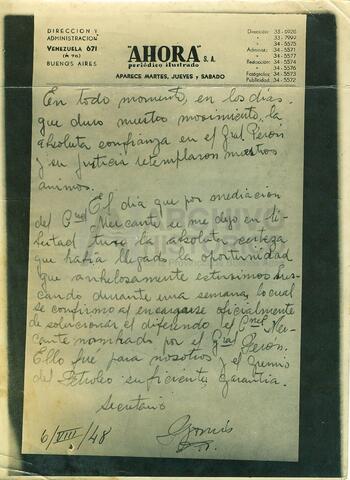 DIRECCION Y
ADMINISTRACION
VENEZUELA 671
BUENOS AIRES
"AHORA" S. A.
periódico ilustrado
APARECE MARTES, JUEVES y SABADO
Dirección: 33 - 0926
" 33 - 7999
Administ.: 34 - 5575
Avisos: 34 - 5571
Redacción: 34 - 5574
" 34 - 5576
Fotógrafos: 34 - 5573
Publicidad: 34 - 5572
En todo momento, en los días
que duro nuestro movimiento, la
absoluta confianza en el Gral Perón
y su justicia retemplaron nuestros
animos.
El día que por mediacion
del Cnel Mercante se me dejo en li-
bertad tuve la absoluta certeza
que habia llegado la oportunidad
que anhelosamente estuvimos bus-
cando durante una semana, lo cual
se confirmo al encargarse oficialmente
de solucionar el diferendo el Cnel Mer-
cante nombrado por el Gral Perón.
Ello fué para nosotros y el Gremio
del Petroleo suficiente garantia.
Secretario
6/VIII/48